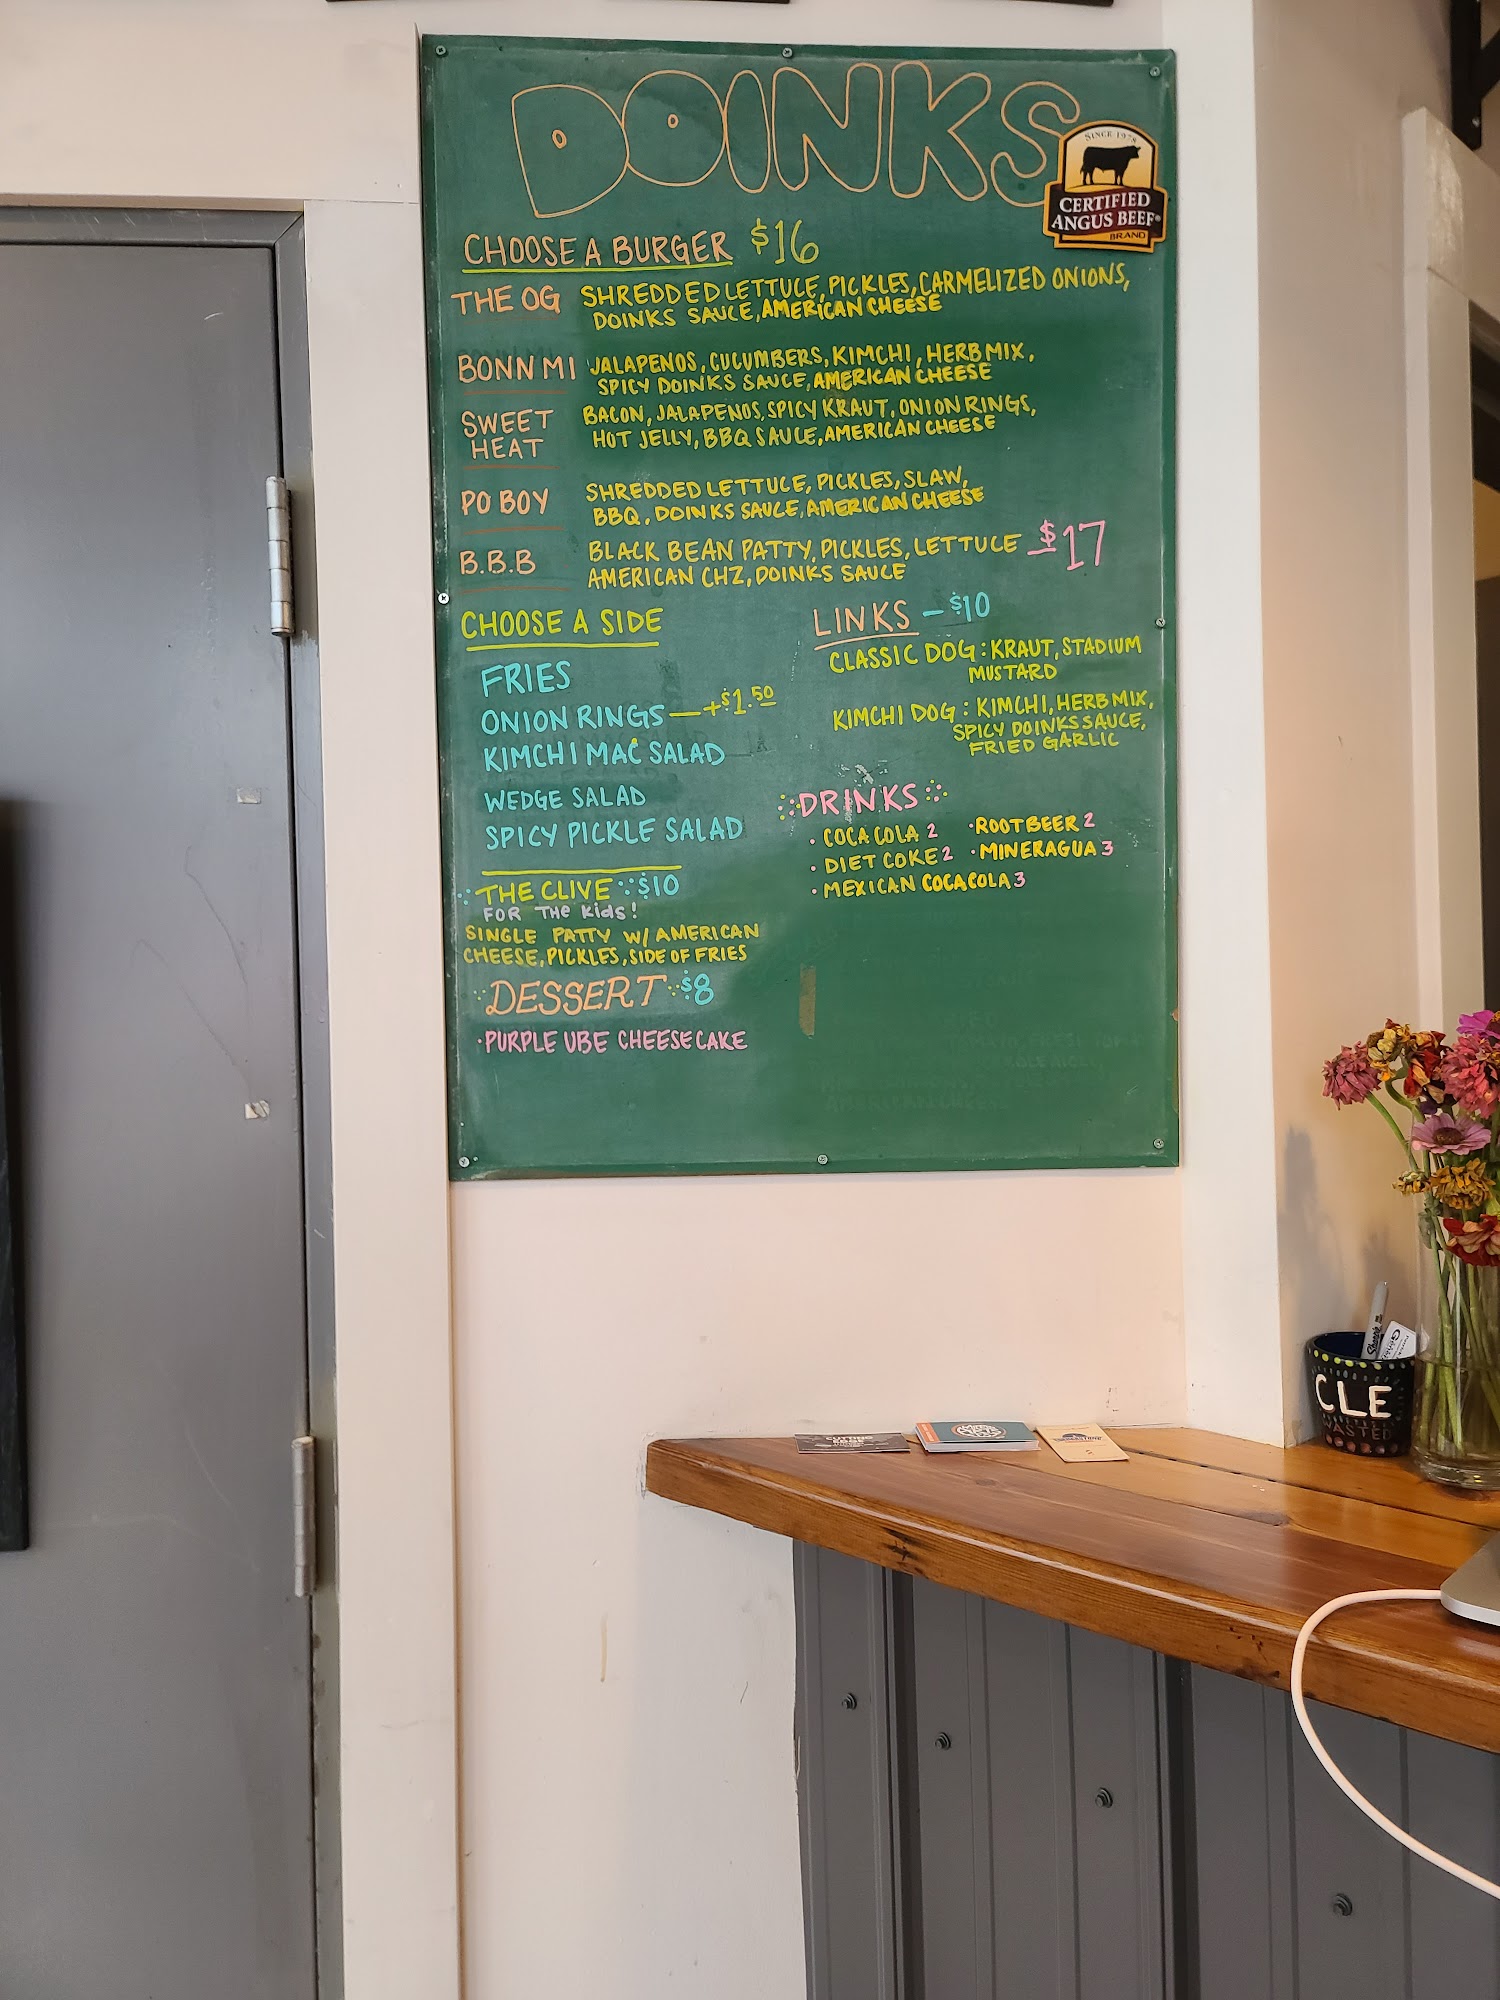 DOINKS
SINCE 1978
CERTIFIED
ANGUS BEEF®
BRAND
CHOOSE A BURGER $16
THE OG SHREDDED LETTUCE, PICKLES, CARMELIZED ONIONS,
DOINKS SAUCE, AMERICAN CHEESE
BONN MI JALAPENOS, CUCUMBERS, KIMCHI, HERB MIX,
SPICY DOINKS SAUCE, AMERICAN CHEESE
SWEET HEAT BACON, JALAPENOS, SPICY KRAUT, ONION RINGS,
HOT JELLY, BBQ SAUCE, AMERICAN CHEESE
PO BOY SHREDDED LETTUCE, PICKLES, SLAW,
BBQ, DOINKS SAUCE, AMERICAN CHEESE
B.B.B BLACK BEAN PATTY, PICKLES, LETTUCE $17
AMERICAN CHZ, DOINKS SAUCE
CHOOSE A SIDE
FRIES
ONION RINGS — +$1.50
KIMCHI MAC SALAD
WEDGE SALAD
SPICY PICKLE SALAD
LINKS – $10
CLASSIC DOG: KRAUT, STADIUM
MUSTARD
KIMCHI DOG: KIMCHI, HERB MIX,
SPICY DOINKS SAUCE,
FRIED GARLIC
DRINKS
· COCA COLA 2 · ROOTBEER 2
· DIET COKE 2 · MINERAGUA 3
· MEXICAN COCACOLA 3
THE CLIVE $10
FOR THE KIDS!
SINGLE PATTY W/ AMERICAN
CHEESE, PICKLES, SIDE OF FRIES
DESSERT $8
· PURPLE UBE CHEESECAKE
Sharpie
CLE
WASTED